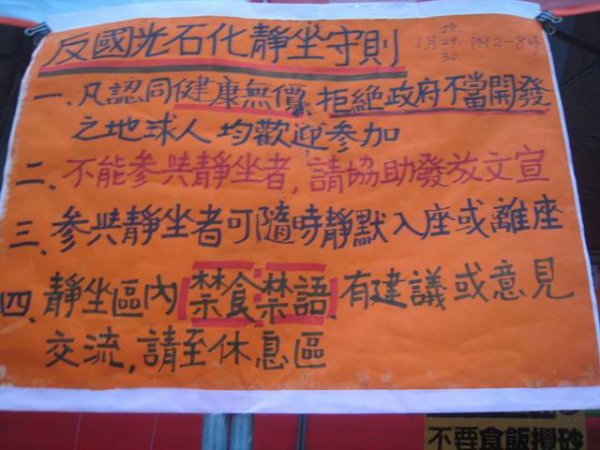 反國光石化靜坐守則
28.
1月29. PM 2-8時
30.
一、凡認同健康無價、拒絕政府不當開發
之地球人均歡迎參加
二、不能參共靜坐者,請協助發放文宣
三、參共靜坐者可隨時靜默入座或離座
四、靜坐區內禁食禁語,有建議或意見
交流,請至休息區
不要食飯攪砂